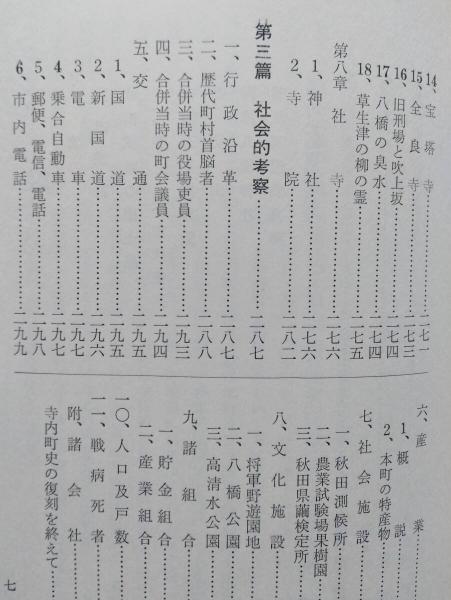 14、宝塔寺……二七一
15、全良寺……二七三
16、旧刑場と吹上坂……二七四
17、八橋の臭水……二七四
18、草生津の柳の霊……二七五
第八章 社寺……二七六
1、神社……二七六
2、寺院……二八二
第三篇 社会的考察……二八七
一、行政沿革……二八七
二、歴代町村首脳者……二八八
三、合併当時の役場吏員……二九三
四、合併当時の町会議員……二九四
五、交通……二九五
1、国道……二九五
2、新国道……二九六
3、電車……二九七
4、乗合自動車……二九七
5、郵便、電信、電話……二九八
6、市内電話……二九九
六、産業
1、概説
2、本町の特産物
七、社会施設
一、秋田測候所
二、農業試験場果樹園
三、秋田県繭検定所
八、文化施設
一、将軍野遊園地
二、八橋公園
三、高清水公園
九、諸組合
一、貯金組合
二、産業組合
一〇、人口及戸数
一一、戦病死者
附、諸会社
寺内町史の復刻を終えて
七